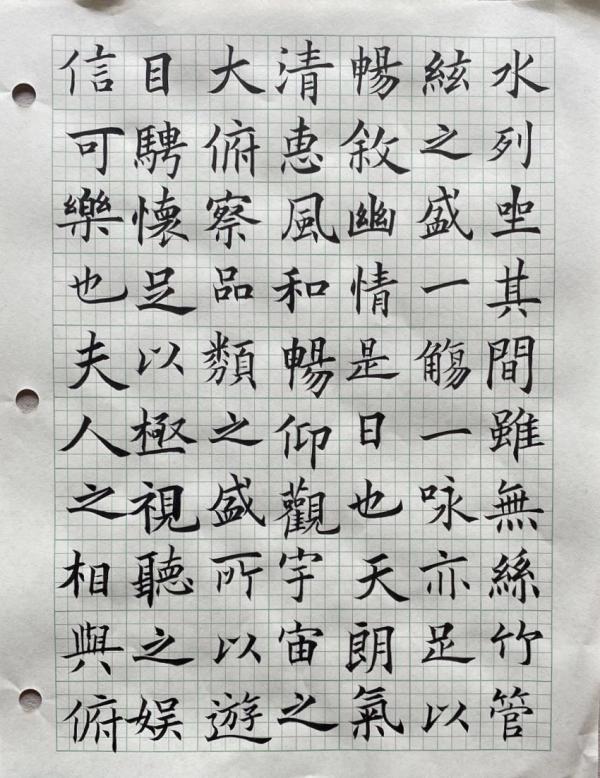 水列坐其間雖無絲竹管
絃之盛一觴一咏亦足以
暢敘幽情是日也天朗氣
清惠風和暢仰觀宇宙之
大俯察品類之盛所以遊
目騁懷足以極視聽之娱
信可樂也夫人之相與俯